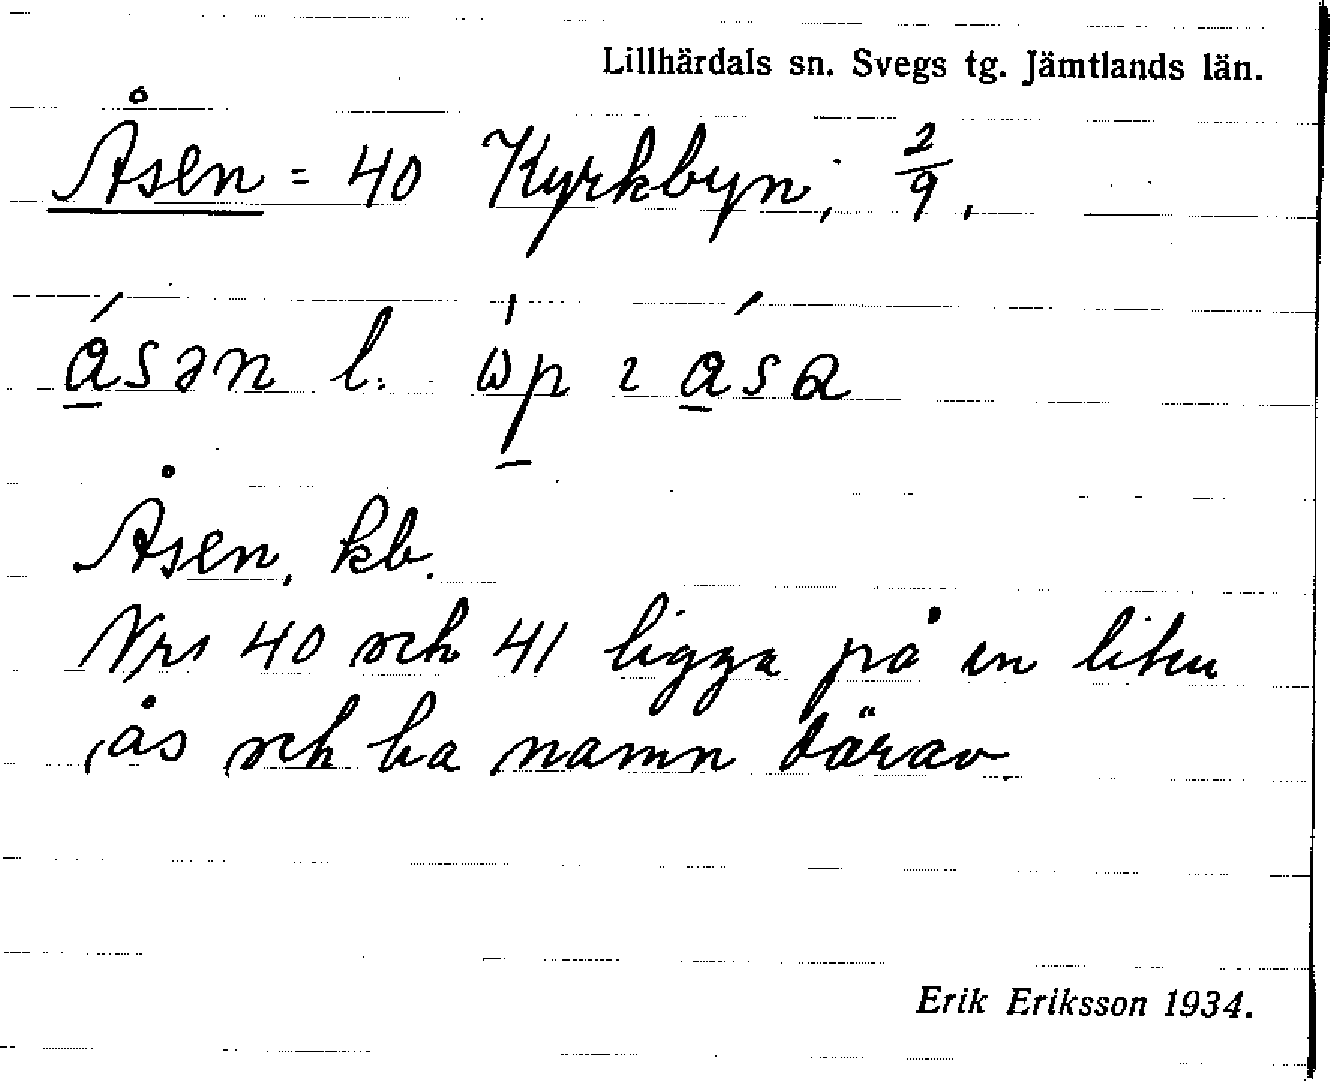 Lillhärdals sn. Svegs tg. Jämtlands län.
Åsen = 40 Kyrkbyn, 2/9,
ásən l.
Åsen, kb.
Nrs 40 och 41 ligga på en liten
ås och ha namn därav.
Erik Eriksson 1934.